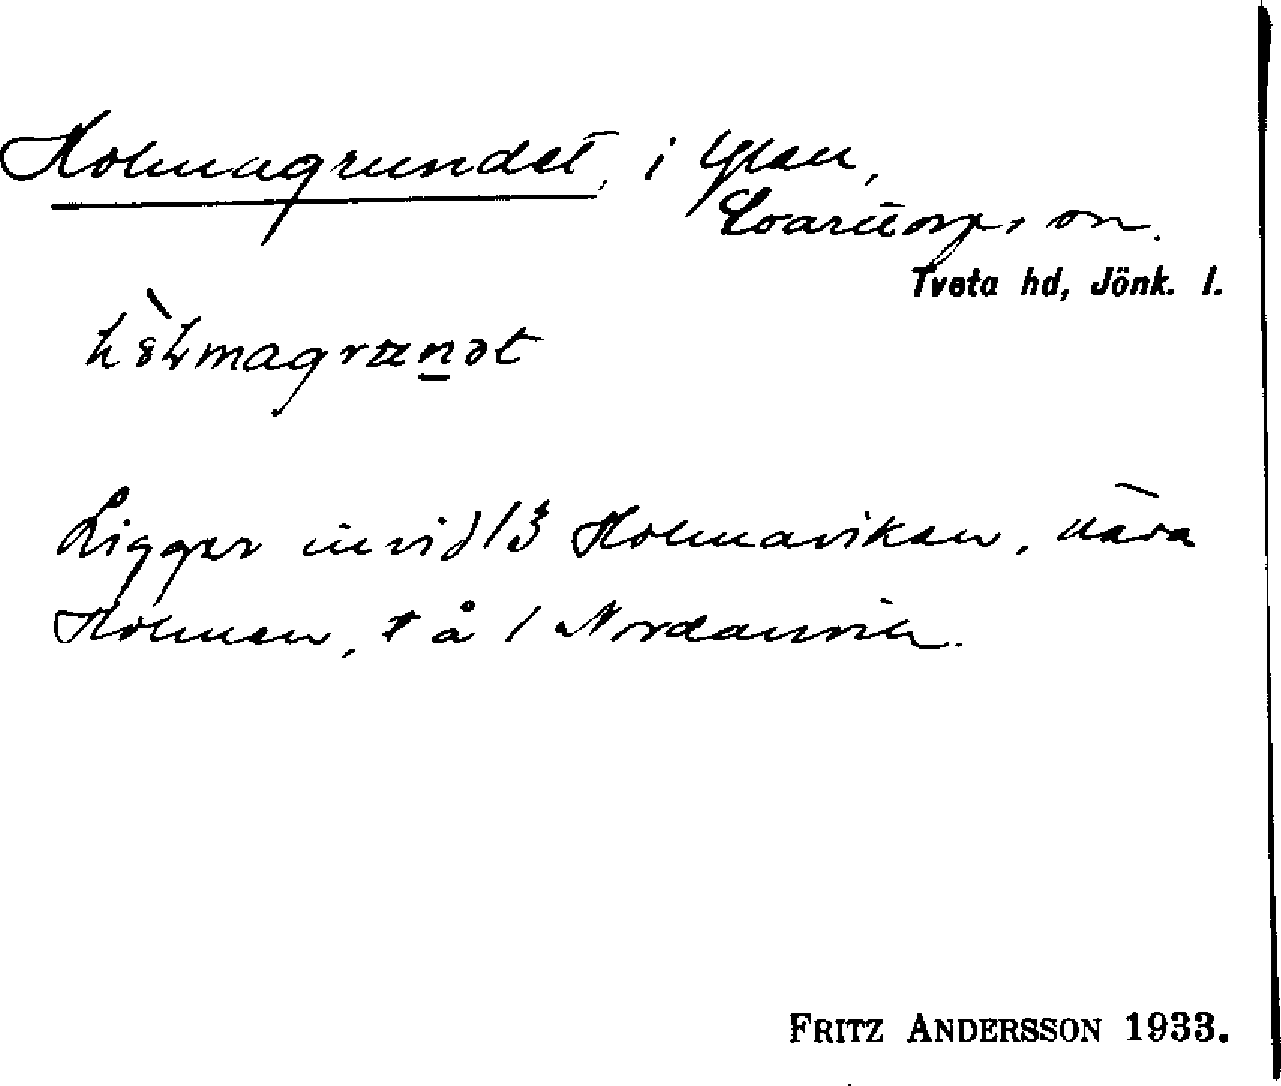 Holmagrundet, i Ylen,
Svarttorps sn.
Tveta hd, Jönk. l.
Ligger invid 1/3 Holmaviken, nära
Holmen, på 1 Nordanvik.
FRITZ ANDERSSON 1933.